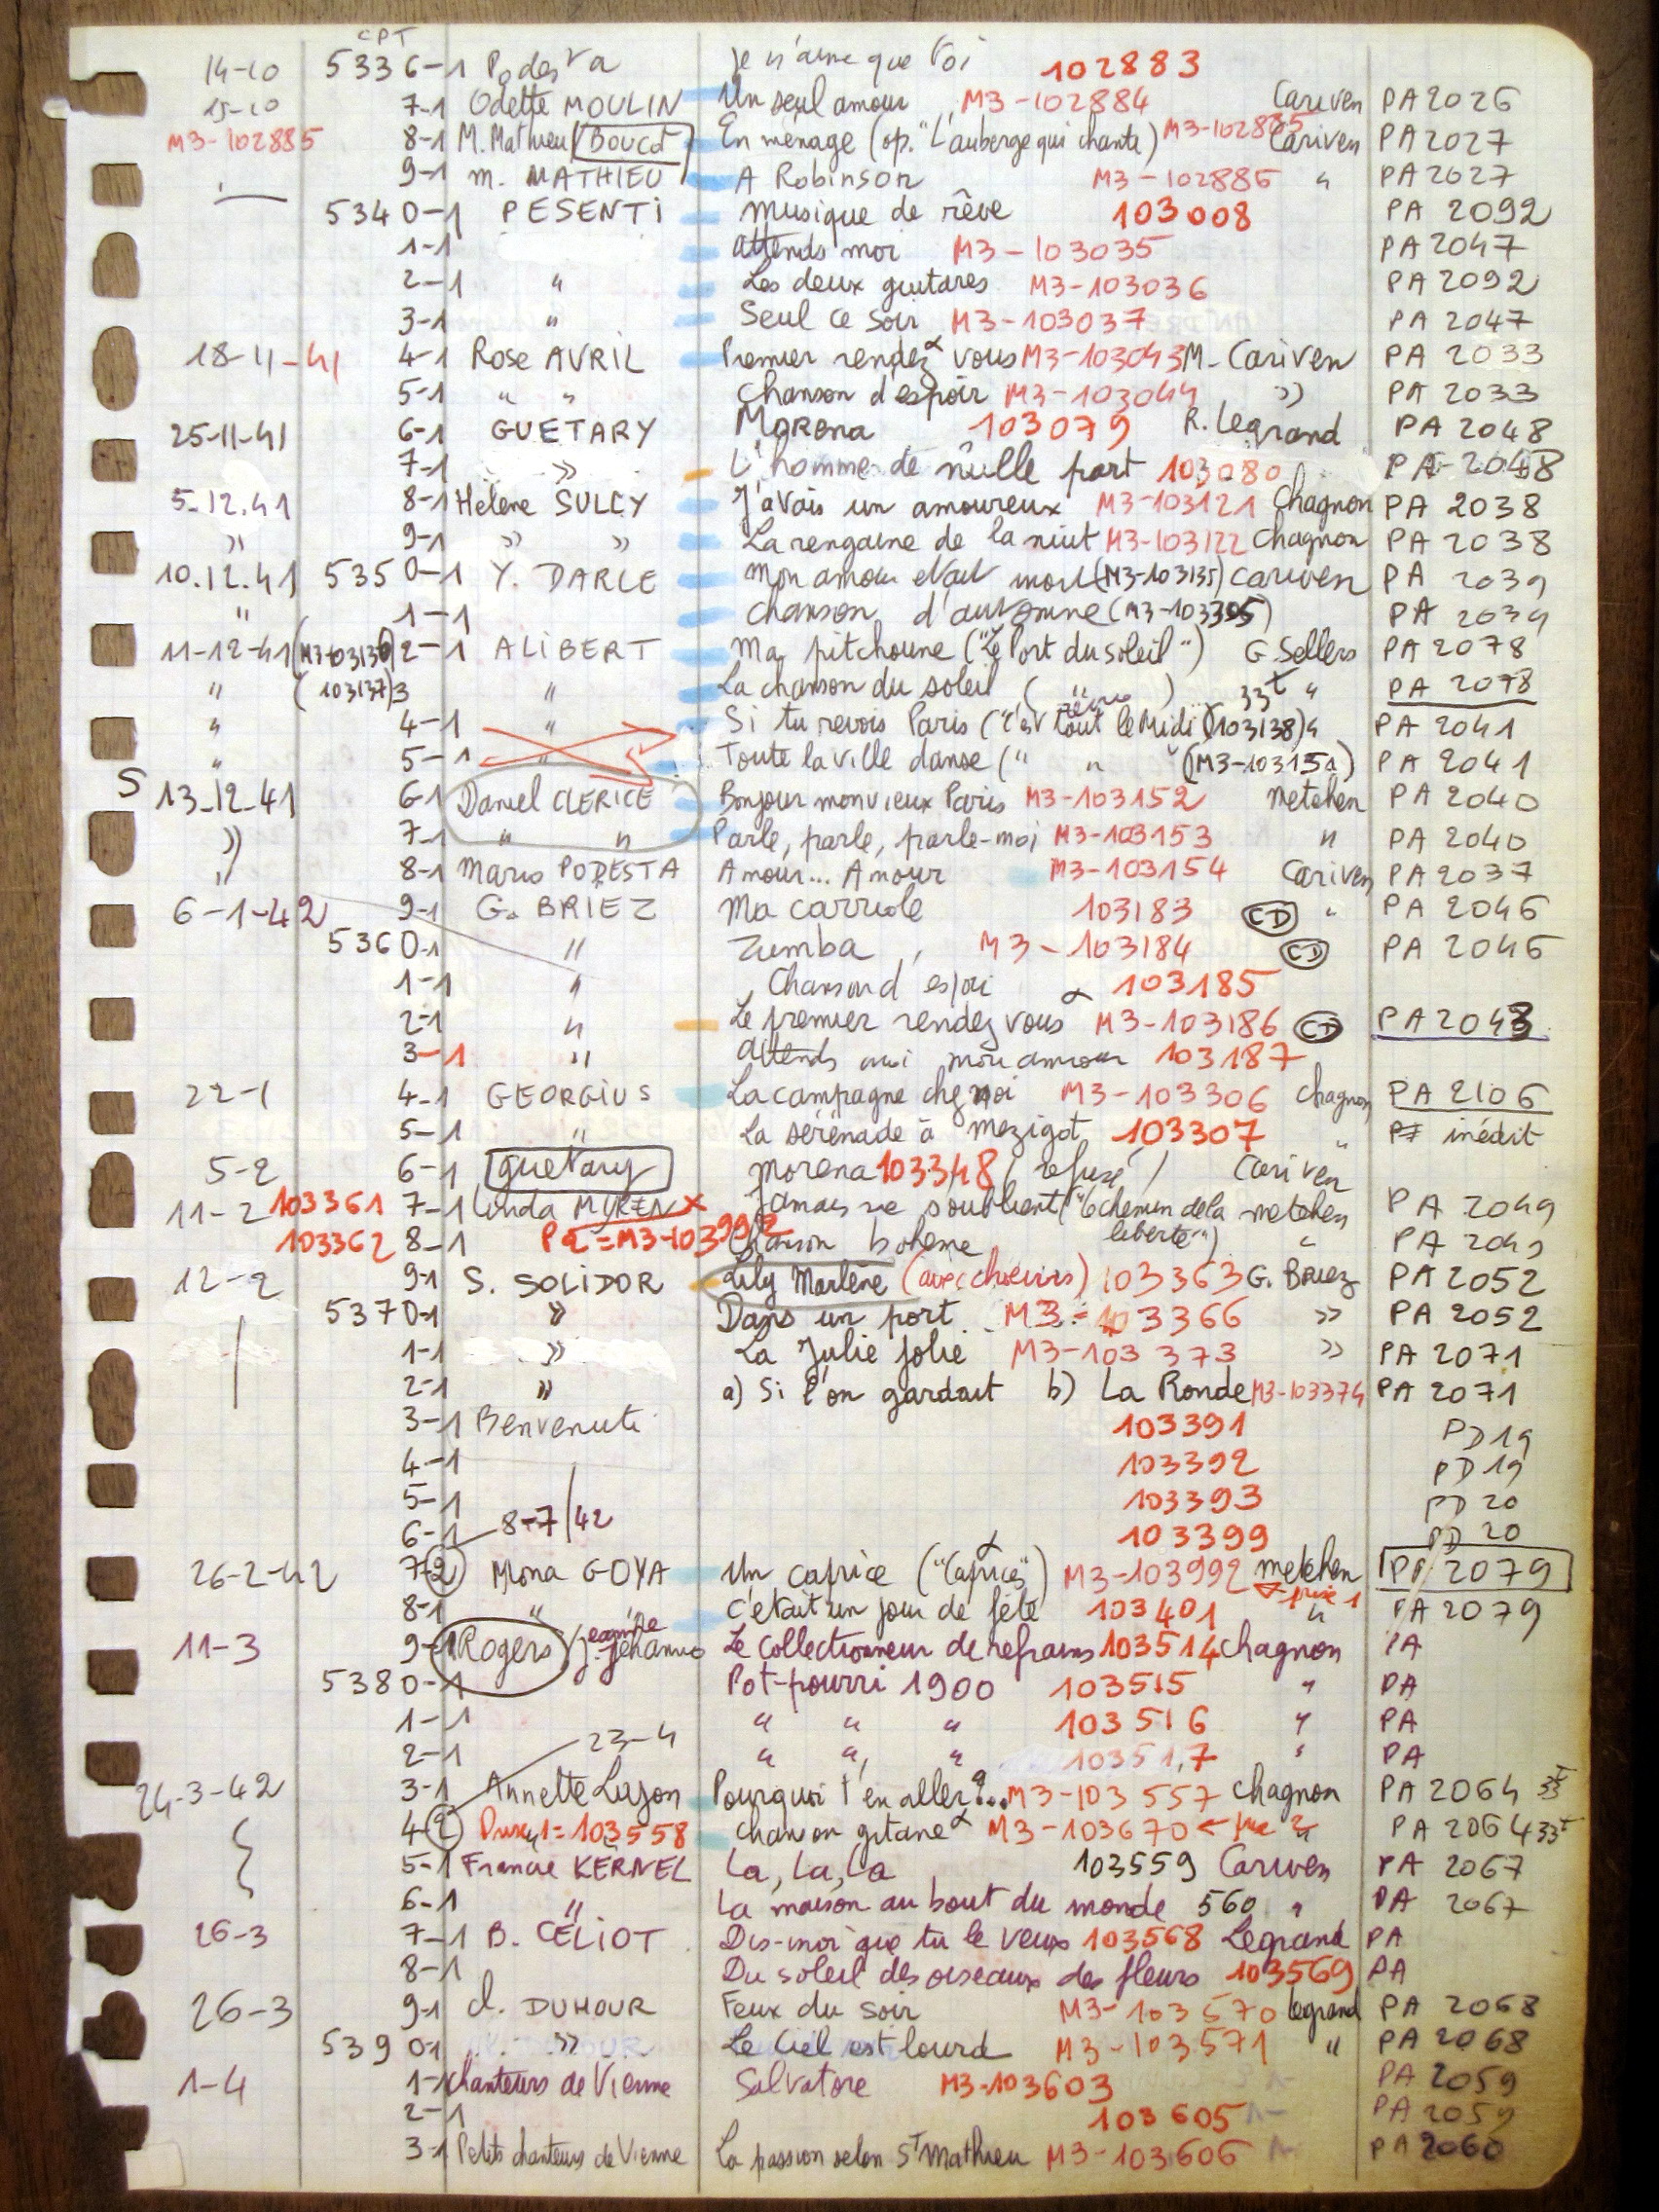 CPT
14-10 5336-1 Podesta Je n'aime que toi 102883
15-10 7-1 Odette MOULIN Un seul amour M3-102884 Cariven PA 2026
M3-102885 8-1 M. Mathieu/Boucot En ménage (op. "L'auberge qui chante) M3-102885 Cariven PA 2027
9-1 m. MATHIEU A Robinson M3-102886 " PA 2027
5340-1 PESENTI Musique de rêve 103008 PA 2092
1-1 attends moi M3-103035 PA 2047
2-1 " Les deux guitares M3-103036 PA 2092
3-1 " Seul ce soir M3-103037 PA 2047
18-11-41 4-1 Rose AVRIL Premier rendez vous M3-103043 M. Cariven PA 2033
5-1 " " Chanson d'espoir M3-103044 » PA 2033
25-11-41 6-1 GUETARY Morena 103079 R. Legrand PA 2048
7-1 » L'homme de nulle part 103080 PA 2048
5.12.41 8-1 Hélène SULLY J'avais un amoureux M3-103121 Chagnon PA 2038
» 9-1 » » La rengaine de la nuit M3-103122 Chagnon PA 2038
10.12.41 5350-1 Y. DARLE Mon amour etait mort (M3-103135) Cariven PA 2039
" 1-1 chanson d'automne (M3-103305) PA 2039
11-12-41 (M3-103136) 2-1 ALIBERT Ma pitchoune ("Le Port du soleil") G. Sellers PA 2078
" (103137) 3 " La chanson du soleil ( " ) 33t " PA 2078
" 4-1 " Si tu revois Paris ("c'est tout le Midi) (103138) " PA 2041
revue
" 5-1 " Toute la ville danse (" " " (M3-103151) PA 2041
S 13-12-41 6-1 Daniel CLERICE Bonjour mon vieux Paris M3-103152 Metehen PA 2040
» 7-1 " " Parle, parle, parle-moi M3-103153 " PA 2040
" 8-1 Mario PODESTA Amour... Amour M3-103154 Cariven PA 2037
6-1-42 9-1 G. BRIEZ Ma carriole 103183 CD " PA 2046
5360-1 " Zumba M3-103184 CD PA 2046
1-1 " Chanson d'espoi 103185
2-1 " Le premier rendez vous M3-103186 CD PA 2043
3-1 " attends moi mon amour 103187
22-1 4-1 GEORGIUS La campagne chez moi M3-103306 chagnon PA 2106
5-1 " La sérénade à mezigot 103307 " inédit
5-2 6-1 guetary morena 103348 / refusé / Cariven
11-2 103361 7-1 Linda MYREN x Jamais ne s'oublient ("le chemin de la liberté") metehen PA 2049
103362 8-1 P2 = M3-103992 Chanson bohème " PA 2049
12-2 9-1 S. SOLIDOR Lily Marlène (avec chœurs) 103363 G. Briez PA 2052
5370-1 » Dans un port M3-103366 » PA 2052
1-1 » La Julie jolie M3-103373 » PA 2071
2-1 » a) Si l'on gardait b) La Ronde M3-103374 PA 2071
3-1 Benvenuti 103391 PD 19
4-1 103392 PD 19
5-1 103393 PD 20
6-1 8-7/42 103399 PD 20
26-2-42 7-2 Mona GOYA Un caprice ("Caprices") M3-103992 metehen PA 2079
prise 1
8-1 " " C'était un jour de fête 103401 " PA 2079
11-3 9-1 Rogers / Jeannine J. Jehanno Le collectionneur de refrains 103514 Chagnon PA
5380-1 Pot-pourri 1900 103515 " PA
1-1 " " " 103516 " PA
2-1 23-4 " " " 103517 " PA
24-3-42 3-1 Annette Lajon Pourquoi t'en aller?... M3-103557 Chagnon PA 2064 33t
4-2 Prise 1 = 103558 chanson gitane M3-103670 ← prise 2 " PA 2064 33t
5-1 Francie KERNEL La, La, La 103559 Cariven PA 2067
6-1 " La maison au bout du monde 560 " PA 2067
26-3 7-1 B. CÉLIOT Dis-moi que tu le veux 103568 Legrand PA
8-1 Du soleil des oiseaux des fleurs 103569 PA
26-3 9-1 d. DUHOUR Feux du soir M3-103570 Legrand PA 2068
5390-1 » Le Ciel est lourd M3-103571 " PA 2068
1-4 1-1 Chanteurs de Vienne Salvatore M3-103603 PA 2059
2-1 103605 PA 2059
3-1 Petits chanteurs de Vienne La passion selon St Mathieu M3-103606 PA 2060